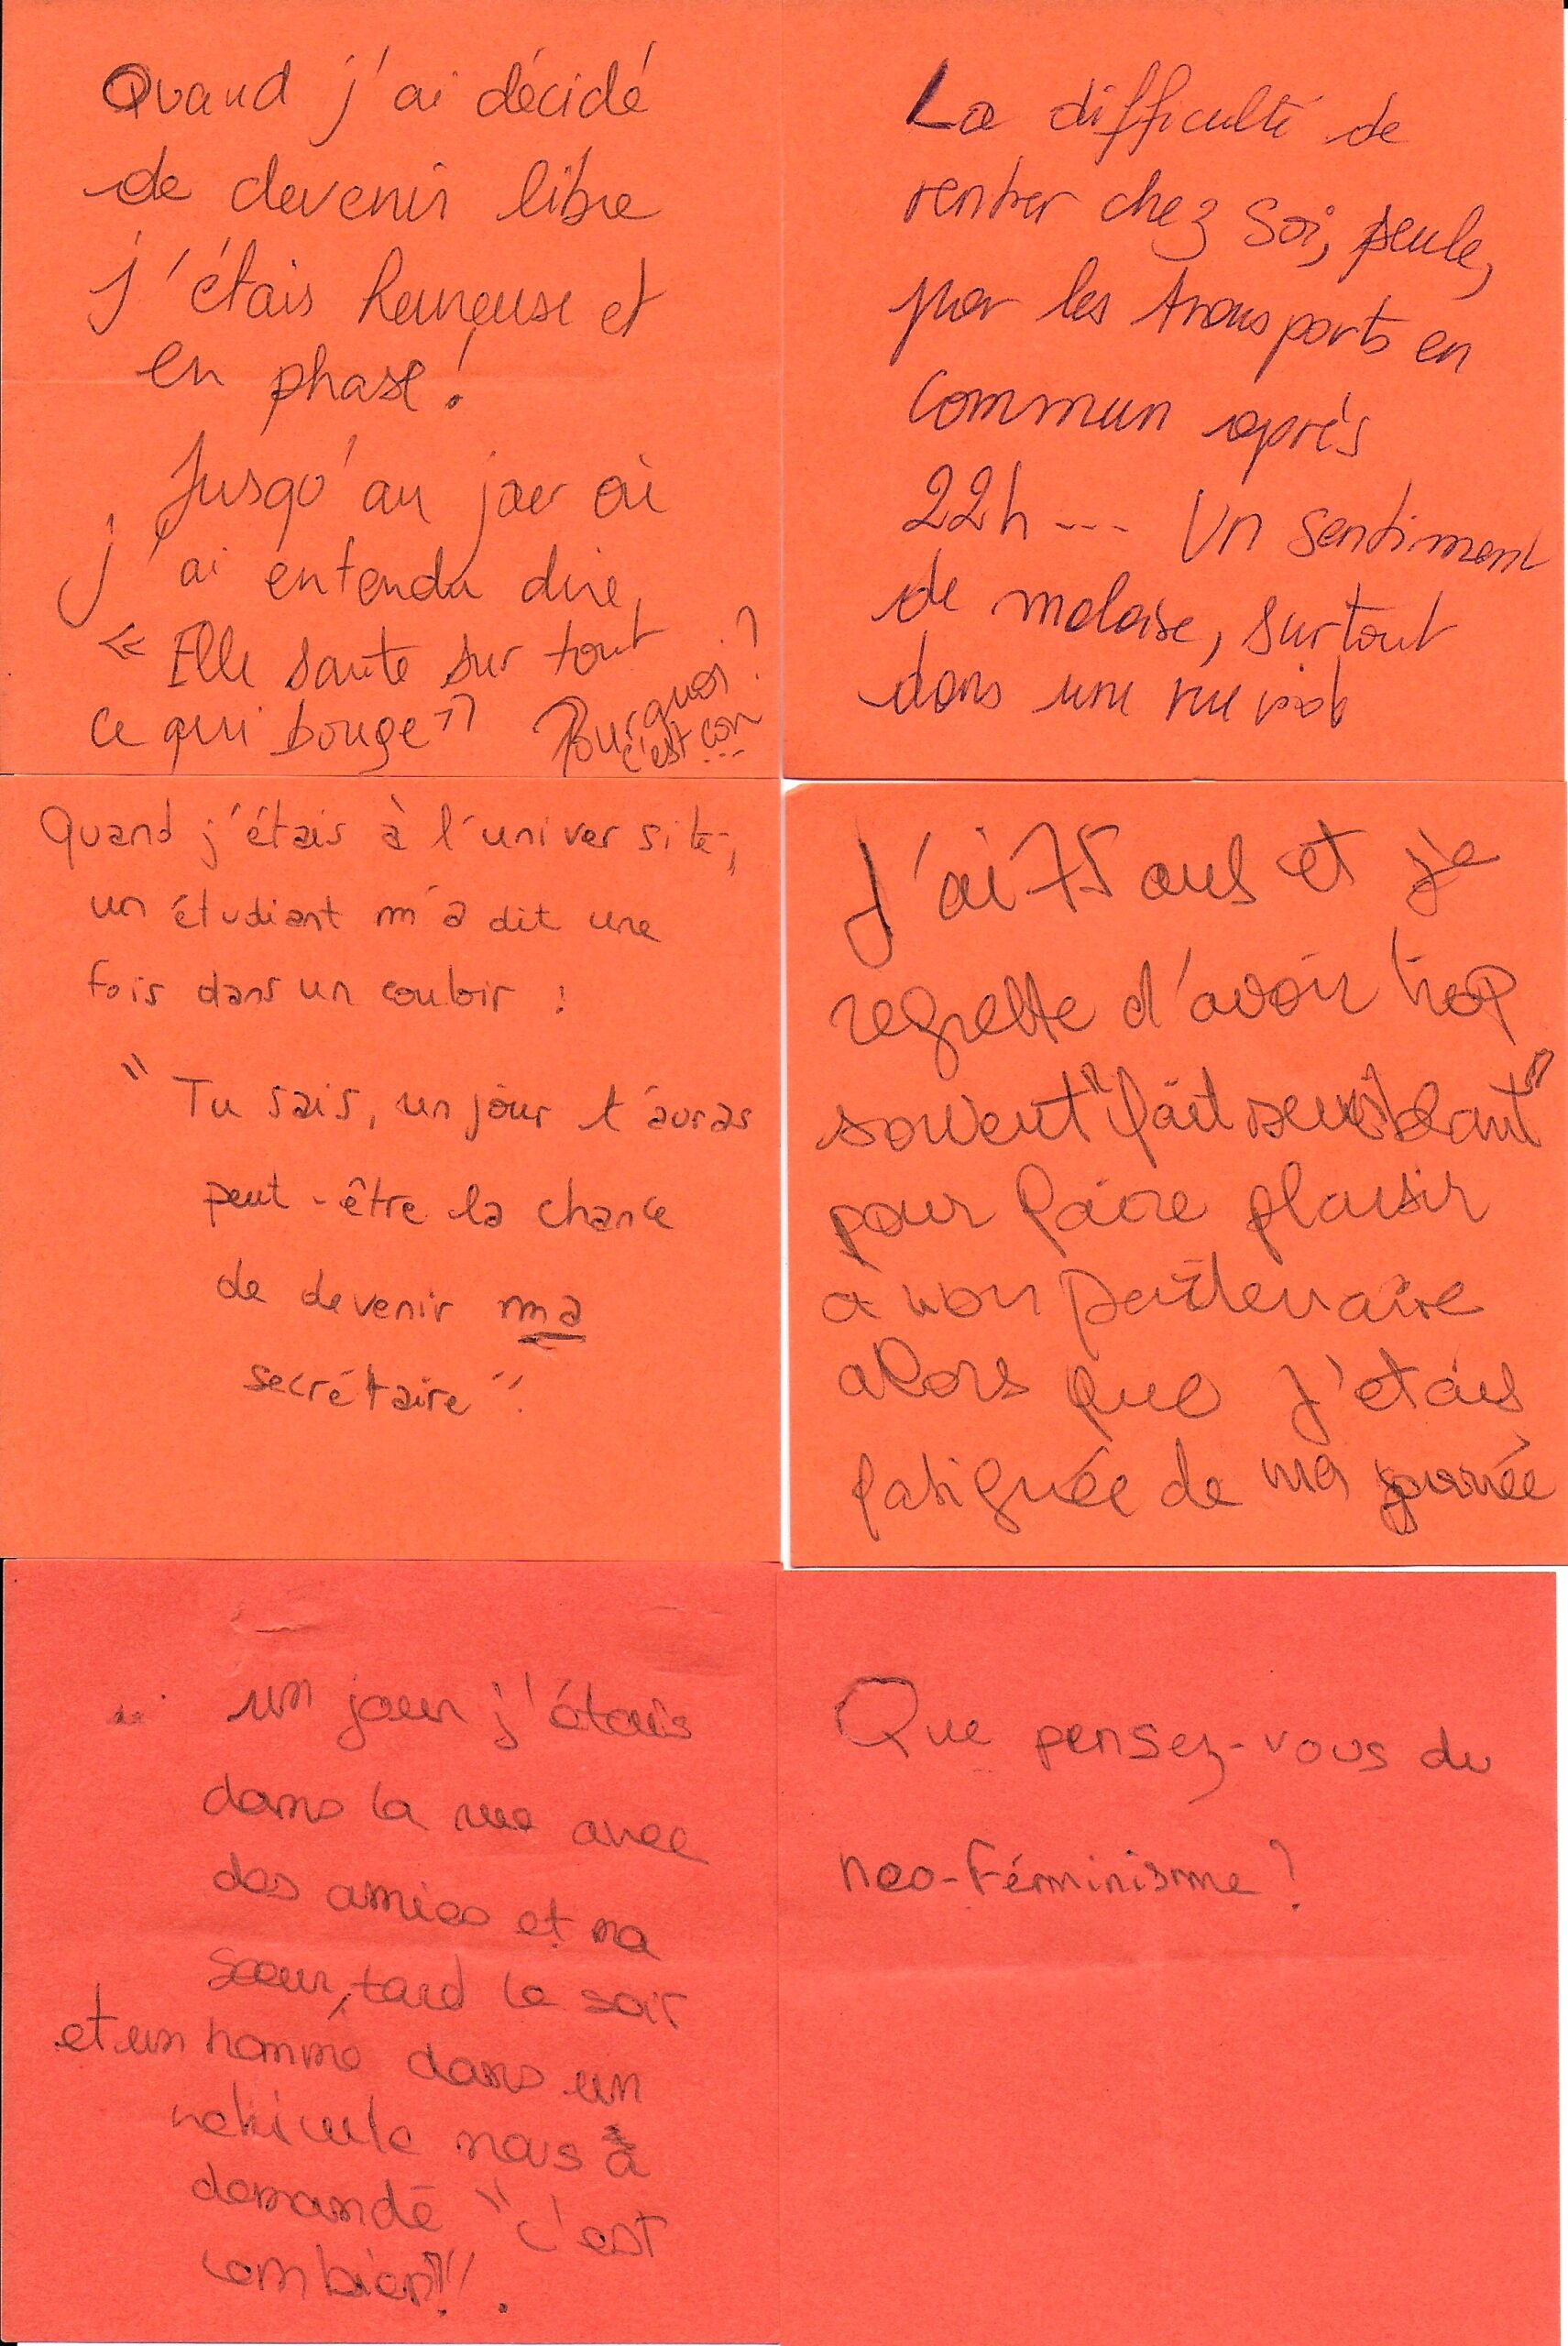 Quand j'ai décidé
de devenir libre
j'étais heureuse et
en phase !
Jusqu'au jour où
j'ai entendu dire,
« Elle saute sur tout
ce qui bouge »
Pourquoi ?
c'est con
...
La difficulté de
rentrer chez soi, seule,
par les transports en
commun après
22h --- Un sentiment
de malaise, surtout
dans une rue
Quand j'étais à l'université,
un étudiant m'a dit une
fois dans un couloir :
"Tu sais, un jour t'auras
peut-être la chance
de devenir ma
secrétaire".
J'ai 75 ans et je
regrette d'avoir trop
souvent "fait semblant"
pour faire plaisir
à mon partenaire
alors que j'etais
fatiguée de ma journée
un jour j'étais
dans la rue avec
des amies et ma
soeur, tard le soir
et un homme dans un
vehicule nous a
demandé "c'est
combien?".
Que pensez-vous du
neo-féminisme ?